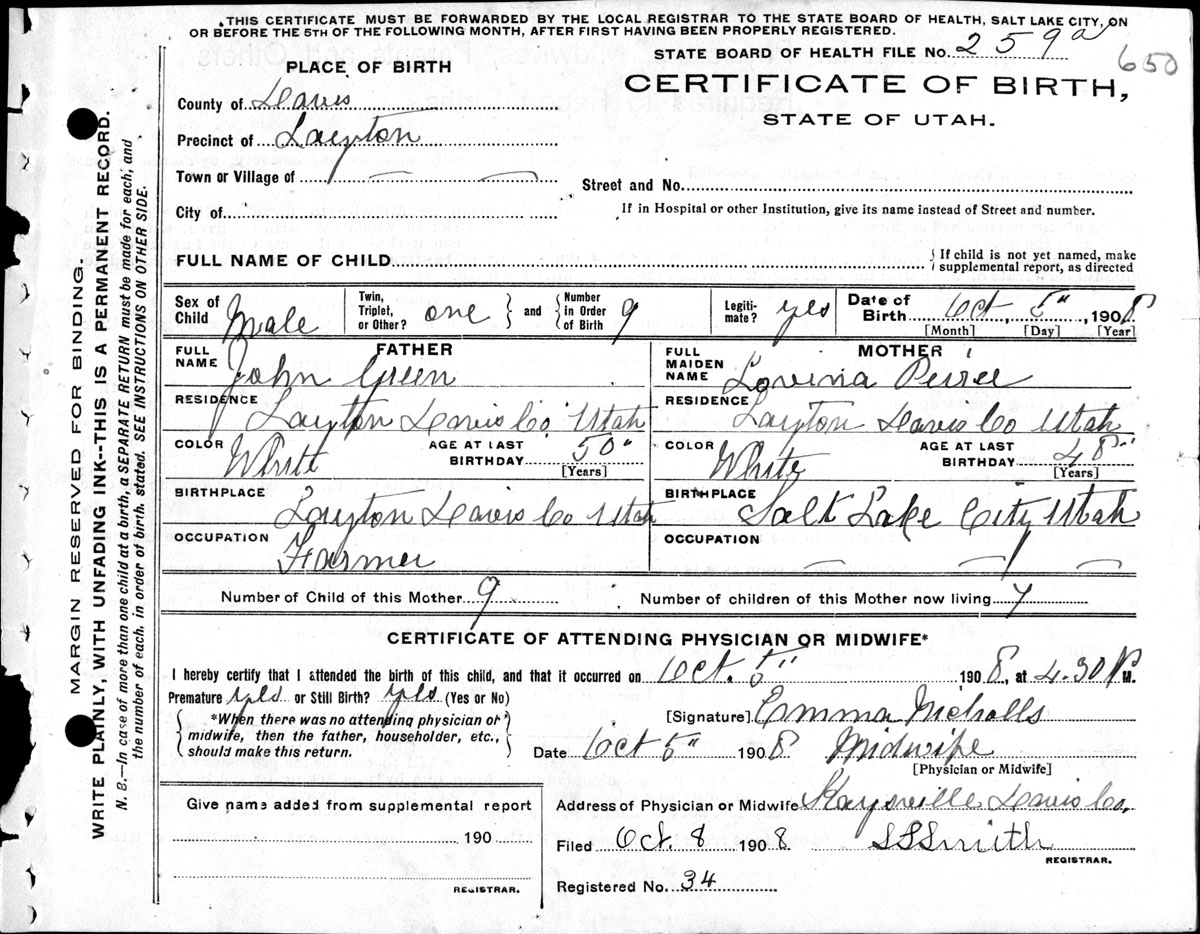 THIS CERTIFICATE MUST BE FORWARDED BY THE LOCAL REGISTRAR TO THE STATE BOARD OF HEALTH, SALT LAKE CITY, ON
OR BEFORE THE 5TH OF THE FOLLOWING MONTH, AFTER FIRST HAVING BEEN PROPERLY REGISTERED.
STATE BOARD OF HEALTH FILE NO. 259a
650
PLACE OF BIRTH
CERTIFICATE OF BIRTH,
STATE OF UTAH.
County of Davis
Precinct of Layton
Town or Village of — —
Street and No.
City of
If in Hospital or other Institution, give its name instead of Street and number.
FULL NAME OF CHILD
{ If child is not yet named, make
supplemental report, as directed
Sex of Child Male Twin, Triplet, or Other? one } and { Number in Order of Birth 9 Legiti-mate? yes Date of Birth Oct, 5", 1908
[Month] [Day] [Year]
FATHER
FULL NAME John Green
RESIDENCE Layton Davis Co Utah
COLOR White AGE AT LAST BIRTHDAY 50"
[Years]
BIRTHPLACE Layton Davis Co Utah
OCCUPATION Farmer
MOTHER
FULL MAIDEN NAME Lovina
RESIDENCE Layton Davis Co Utah
COLOR White AGE AT LAST BIRTHDAY 48"
[Years]
BIRTHPLACE Salt Lake City Utah
OCCUPATION — —
Number of Child of this Mother 9 Number of children of this Mother now living 7
CERTIFICATE OF ATTENDING PHYSICIAN OR MIDWIFE*
I hereby certify that I attended the birth of this child, and that it occurred on Oct. 5" 1908, at 4.30 P M.
Premature yes or Still Birth? yes (Yes or No)
{ *When there was no attending physician or
midwife, then the father, householder, etc.,
should make this return. }
[Signature] Emma Nicholls
Date Oct 5" 1908 Midwife
[Physician or Midwife]
Give name added from supplemental report
190
REGISTRAR.
Address of Physician or Midwife Kaysville Davis Co,
Filed Oct. 8 1908 Smith
REGISTRAR.
Registered No. 34
MARGIN RESERVED FOR BINDING.
WRITE PLAINLY, WITH UNFADING INK--THIS IS A PERMANENT RECORD.
N. B.—In case of more than one child at a birth, a SEPARATE RETURN must be made for each, and
the number of each, in order of birth, stated. SEE INSTRUCTIONS ON OTHER SIDE.